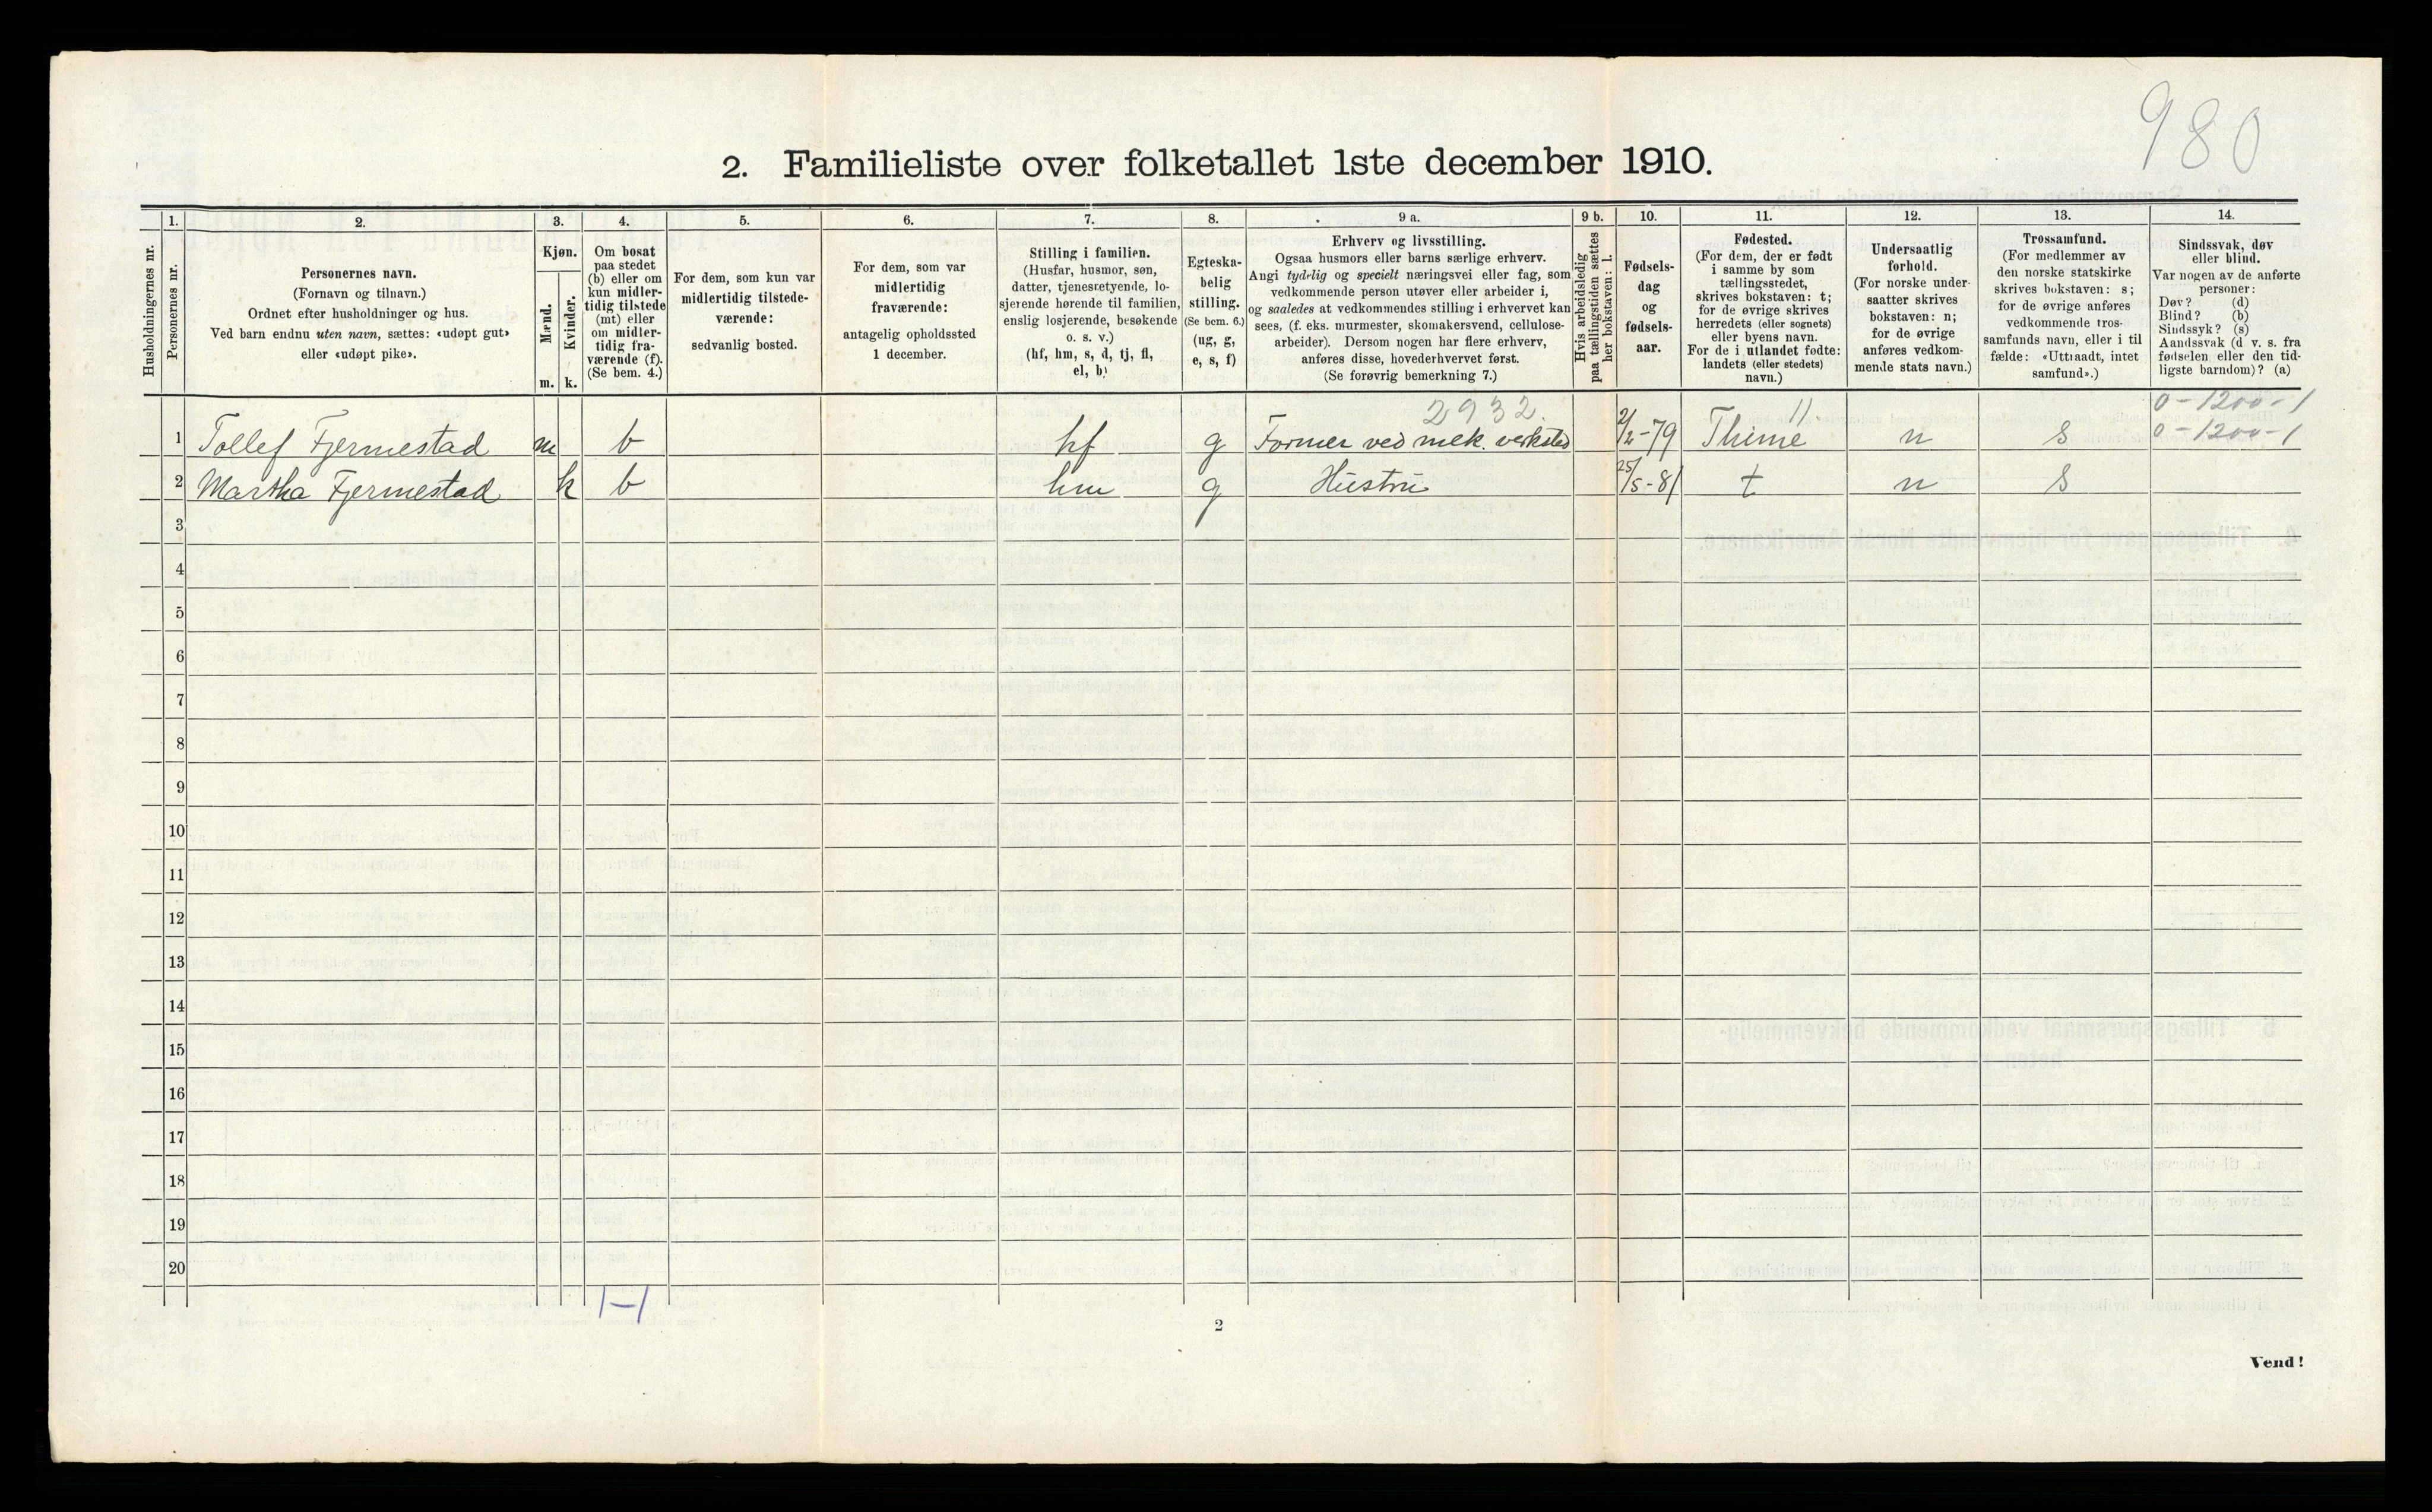 980
2. Familieliste over folketallet 1ste december 1910.
Husholdningernes nr.
1.
Personernes nr.
2.
Personernes navn.
(Fornavn og tilnavn.)
Ordnet efter husholdninger og hus.
Ved barn endnu uten navn, sættes: «udøpt gut»
eller «udøpt pike».
3.
Kjøn.
Mænd.
m.
Kvinder.
k.
4.
Om bosat
paa stedet
(b) eller om
kun midler-
tidig tilstede
(mt) eller
om midler-
tidig fra-
værende (f).
(Se bem. 4.)
5.
For dem, som kun var
midlertidig tilstede-
værende:
sedvanlig bosted.
6.
For dem, som var
midlertidig
fraværende:
antagelig opholdssted
1 december.
7.
Stilling i familien.
(Husfar, husmor, søn,
datter, tjenestetyende, lo-
sjerende hørende til familien,
enslig losjerende, besøkende
o. s. v.)
(hf, hm, s, d, tj, fl,
el, b)
8.
Egteska-
belig
stilling.
(Se bem. 6.)
(ug, g,
e, s, f)
9 a.
Erhverv og livsstilling.
Ogsaa husmors eller barns særlige erhverv.
Angi tydelig og specielt næringsvei eller fag, som
vedkommende person utøver eller arbeider i,
og saaledes at vedkommendes stilling i erhvervet kan
sees, (f. eks. murmester, skomakersvend, cellulose-
arbeider). Dersom nogen har flere erhverv,
anføres disse, hovederhvervet først.
(Se forøvrig bemerkning 7.)
9 b.
Hvis arbeidsledig
paa tællingstiden sættes
her bokstaven: l.
10.
Fødsels-
dag
og
fødsels-
aar.
11.
Fødested.
(For dem, der er født
i samme by som
tællingsstedet,
skrives bokstaven: t;
for de øvrige skrives
herredets (eller sognets)
eller byens navn.
For de i utlandet fødte:
landets (eller stedets)
navn.)
12.
Undersaatlig
forhold.
(For norske under-
saatter skrives
bokstaven: n;
for de øvrige
anføres vedkom-
mende stats navn.)
13.
Trossamfund.
(For medlemmer av
den norske statskirke
skrives bokstaven: s;
for de øvrige anføres
vedkommende tros-
samfunds navn, eller i til
fælde: «Uttraadt, intet
samfund».)
14.
Sindssvak, døv
eller blind.
Var nogen av de anførte
personer:
Døv? (d)
Blind? (b)
Sindssyk? (s)
Aandssvak (d. v. s. fra
fødselen eller den tid-
ligste barndom)? (a)
2932. 11 0-1200-1
1 Tollef Fjermestad m b hf g Former ved mek. verksted 2/2-79 Thime n s 0-1200-1
2 Martha Fjermestad k b hm g Hustru 25/5-81 t n s
3
4
5
6
7
8
9
10
11
12
13
14
15
16
17
18
19
20
1-1
2
Vend!